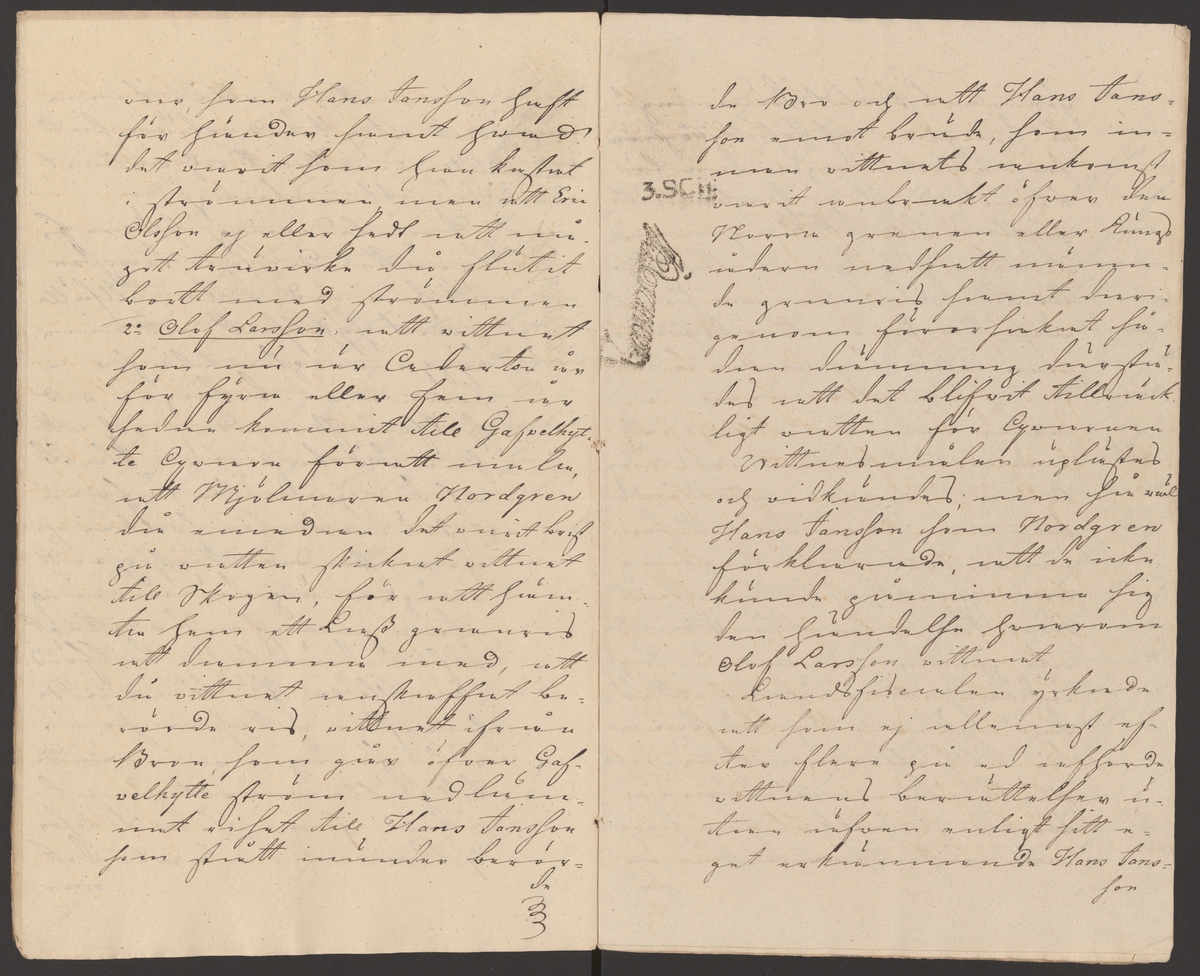 var, som Hans Jansson haft
för händer samt hwad
det varit som han kastat
i strömmen, men att Eric
Olsson ej eller sedt att nå-
got trävirke då flutit
bortt med strömmen
2:o Olof Larsson: att vittnet
som nu är
för fyra eller fem år
sedan kommit till Gafvelhyt-
te Qvarn för att mala,
att Mjölnaren Nordgren
då emedan det varit brist
på vatten skickat vittnet
till Skogen, för att häm-
ta hem ett Lass granris
att dämma med, att
då vittnet anskaffat be-
rörde ris, vittnet ifrån
Bron, som går öfver Gaf-
velhytte ström nedläm-
nat riset till Hans Jansson
som stått inunder berör-
de
de Bro och att Hans Jans-
son emot bräde, som in-
nan vittnets ankomst
varit anbrakt öfver den
Norra grenen eller Kungs
ådern nedsatt nämn-
de granris samt deri-
genom förorsakat så-
dan dämning därstä-
des att det blifvit tillräck-
ligt vatten för Qvarnen
Vittnesmålen uplästes
och vidkändes; men så väl
Hans Jansson som Nordgren
förklarade, att de icke
kunde påminna sig
den händelse hvarom
Olof Larsson vittnat,
Landsfiscalen yrkade
att som ej allenast ef-
ter flere på ed afhörde
vittnens berättelser u-
tan äfven enligt sitt e-
get erkännande Hans Jans-
son
3.SCH.